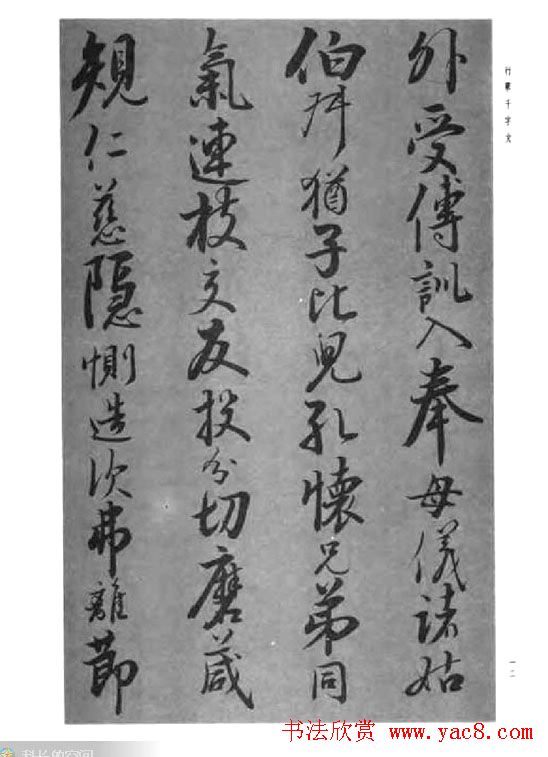 行書千字文
外受傅訓入奉母儀諸姑
伯叔猶子比兒孔懷兄弟同
氣連枝交友投分切磨葴
規仁慈隱惻造次弗離節
一二
书法欣赏 www.yac8.com
科长的空间